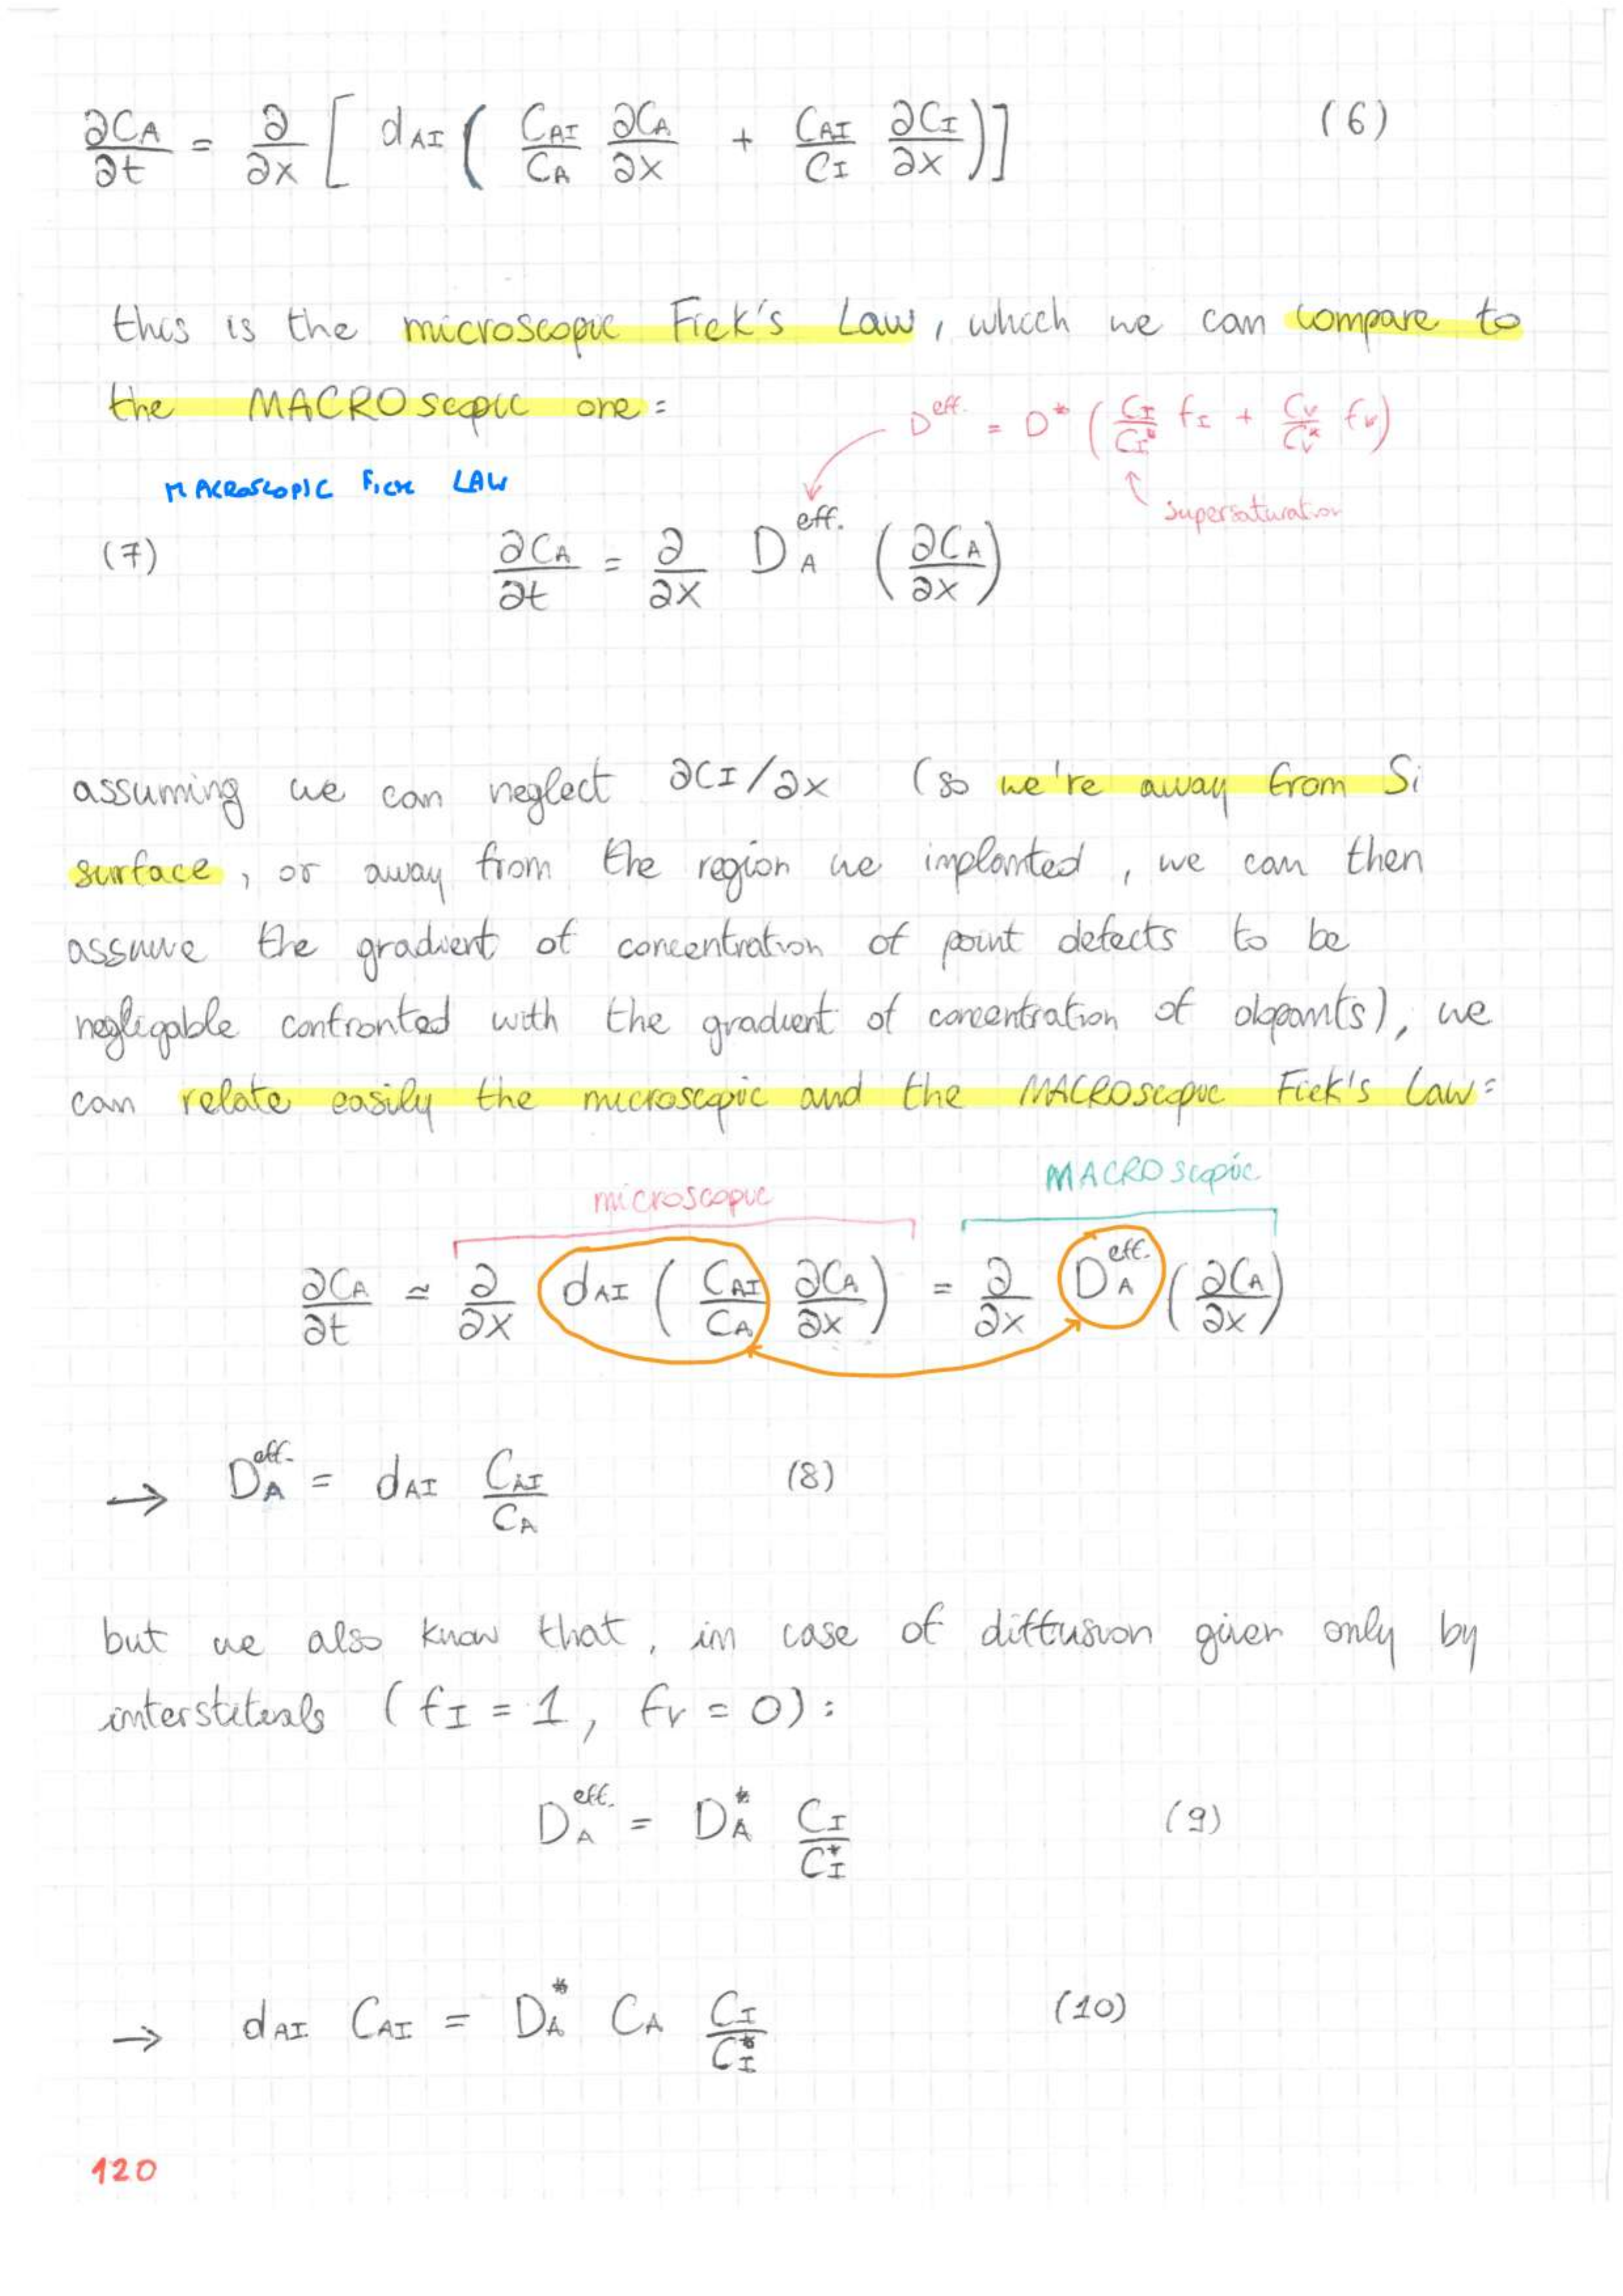 ∂C_A/∂t = ∂/∂x [ d_AI ( C_AI/C_A ∂C_A/∂x + C_AI/C_I ∂C_I/∂x ) ] (6)
this is the microscopic Fick's Law, which we can compare to
the MACROscopic one:
D^eff. = D* ( C_I/C_I* f_I + C_V/C_V* f_V )
supersaturation
MACROSCOPIC FICK LAW
(7) ∂C_A/∂t = ∂/∂x D_A^eff. ( ∂C_A/∂x )
assuming we can neglect ∂C_I/∂x (so we're away from Si
surface, or away from the region we implanted, we can then
assume the gradient of concentration of point defects to be
negligable confronted with the gradient of concentration of dopants), we
can relate easily the microscopic and the MACROscopic Fick's Law:
microscopic MACROscopic
∂C_A/∂t ≃ ∂/∂x d_AI ( C_AI/C_A ∂C_A/∂x ) = ∂/∂x D_A^eff. ( ∂C_A/∂x )
→ D_A^eff. = d_AI C_AI/C_A (8)
but we also know that, in case of diffusion given only by
interstitials (f_I = 1, f_V = 0):
D_A^eff. = D_A* C_I/C_I* (9)
→ d_AI C_AI = D_A* C_A C_I/C_I* (10)
120